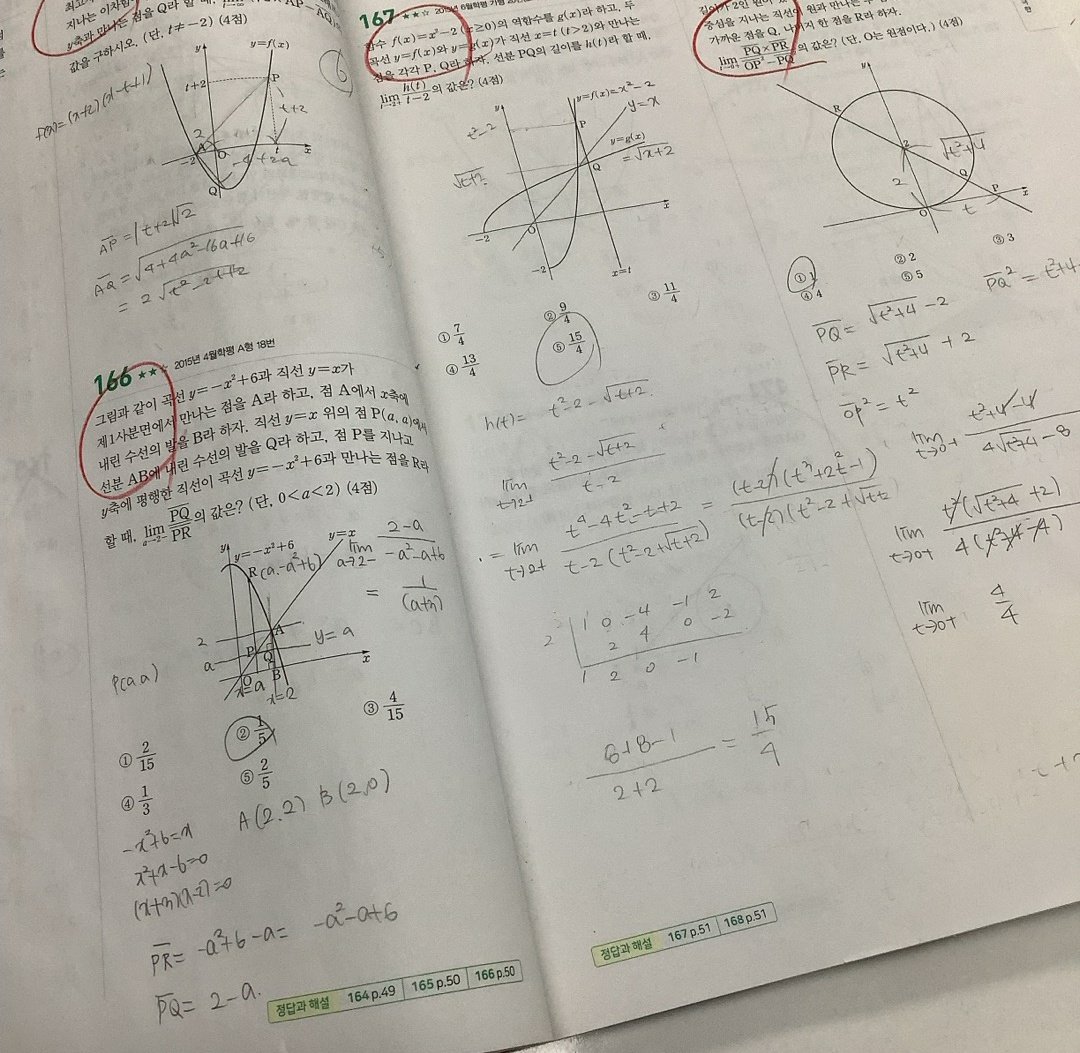 지나는 이차함
y축과 만나는 점을 Q라 할 때,
값을 구하시오. (단, t≠-2) (4점)
f(x)=(x+2)(x-t+1)
y
y=f(x)
t+2
P
t+2
2
A
-2
O
t
x
-4+2a
Q
6
AP=|t+2|√2
AQ=√4+4a²-16a+16
= 2√t²-2t+2
166 ★★☆ 2015년 4월학평 A형 18번
그림과 같이 곡선 y=-x²+6과 직선 y=x가
제1사분면에서 만나는 점을 A라 하고, 점 A에서 x축에
내린 수선의 발을 B라 하자. 직선 y=x 위의 점 P(a, a)에서
선분 AB에 내린 수선의 발을 Q라 하고, 점 P를 지나고
y축에 평행한 직선이 곡선 y=-x²+6과 만나는 점을 R라
할 때, lim a→2- PQ/PR의 값은? (단, 0<a<2) (4점)
y
y=-x²+6
y=x
R(a,-a²+6)
lim a→2- (2-a)/(-a²-a+6)
= 1/(a+3)
2
A
y=a
a
P
Q
x
P(a a)
O
B
x=a
x=2
① 2/15
② 1/5
③ 4/15
④ 1/3
⑤ 2/5
A(2.2) B(2,0)
-x²+6=x
x²+x-6=0
(x+3)(x-2)=0
PR= -a²+6-a= -a²-a+6
PQ= 2-a.
정답과 해설 164 p.49 165 p.50 166 p.50
167 ★★☆
함수 f(x)=x²-2 (x≥0)의 역함수를 g(x)라 하고, 두
곡선 y=f(x)와 y=g(x)가 직선 x=t (t>2)와 만나는
점을 각각 P, Q라 하자. 선분 PQ의 길이를 h(t)라 할 때,
lim t→2+ h(t)/(t-2)의 값은? (4점)
y
y=f(x)=x²-2
y=x
t²-2
P
y=g(x)
=√x+2
√t+2
Q
-2
O
x
-2
x=t
① 7/4
② 9/4
③ 11/4
④ 13/4
⑤ 15/4
h(t)= t²-2-√t+2
lim t→2+ (t²-2-√t+2)/(t-2)
= lim t→2+ (t⁴-4t²-t+2)/(t-2(t²-2+√t+2)) = (t-2)(t³+2t²-1)/(t-2)(t²-2+√t+2)
2 | 1 0 -4 -1 2
2 4 0 -2
1 2 0 -1
(8+8-1)/(2+2) = 15/4
정답과 해설 167 p.51 168 p.51
중심을 지나는 직선이 원과 만나는
가까운 점을 Q, 나머지 한 점을 R라 하자.
lim t→0+ (PQ×PR)/(OP²-PQ)의 값은? (단, O는 원점이다.) (4점)
y
R
2
√t²+4
2
Q
P
O
t
x
① 1
② 2
③ 3
④ 4
⑤ 5
PQ= √t²+4-2
PQ²= t²+4
PR= √t²+4+2
OP²= t²
lim t→0+ (t²+4-4)/(4√t²+4-8)
lim t→0+ t²(√t²+4+2)/4(t²+4-4)
lim t→0+ 4/4